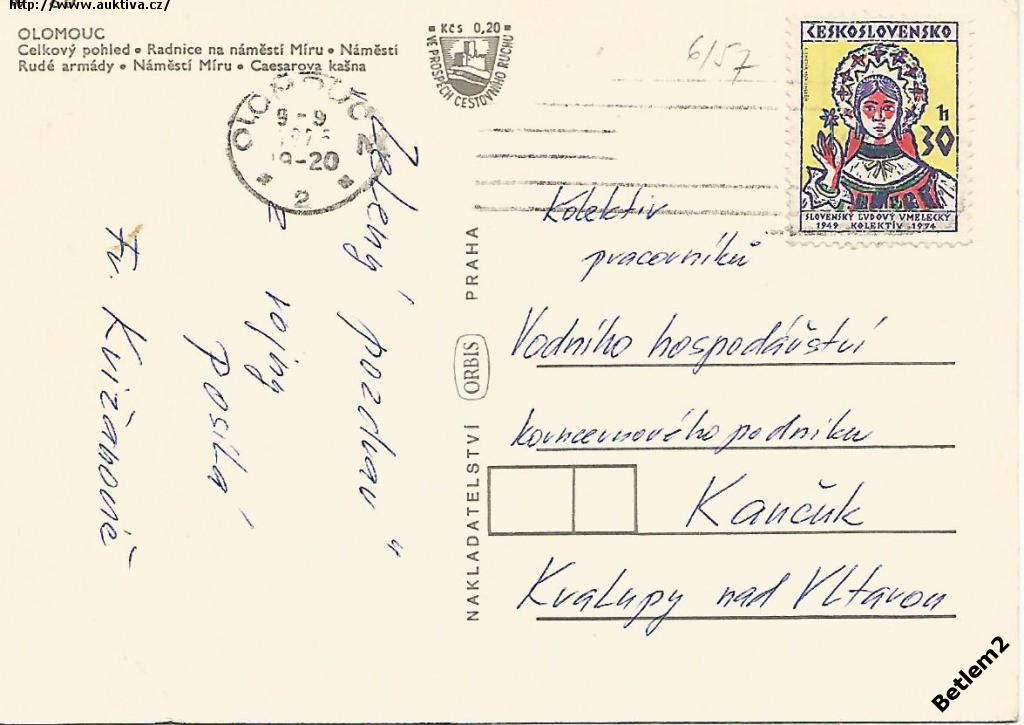 http://www.auktiva.cz/
OLOMOUC
Celkový pohled • Radnice na náměstí Míru • Náměstí
Rudé armády • Náměstí Míru • Caesarova kašna
Kčs 0,20
VE PROSPĚCH CESTOVNÍHO RUCHU
6/57
ČESKOSLOVENSKO
30 h
SLOVENSKÝ ĽUDOVÝ UMELECKÝ
1949 KOLEKTÍV 1974
OLOMOUC 2
9-9
19-20
2
„Zelený pozdrav“
z rojny
posílá
Fr. Križanově
NAKLADATELSTVÍ ORBIS PRAHA
Kolektiv
pracovníků
Vodního hospodářství
koncernového podniku
Kaučuk
Kralupy nad Vltavou
Betlem2